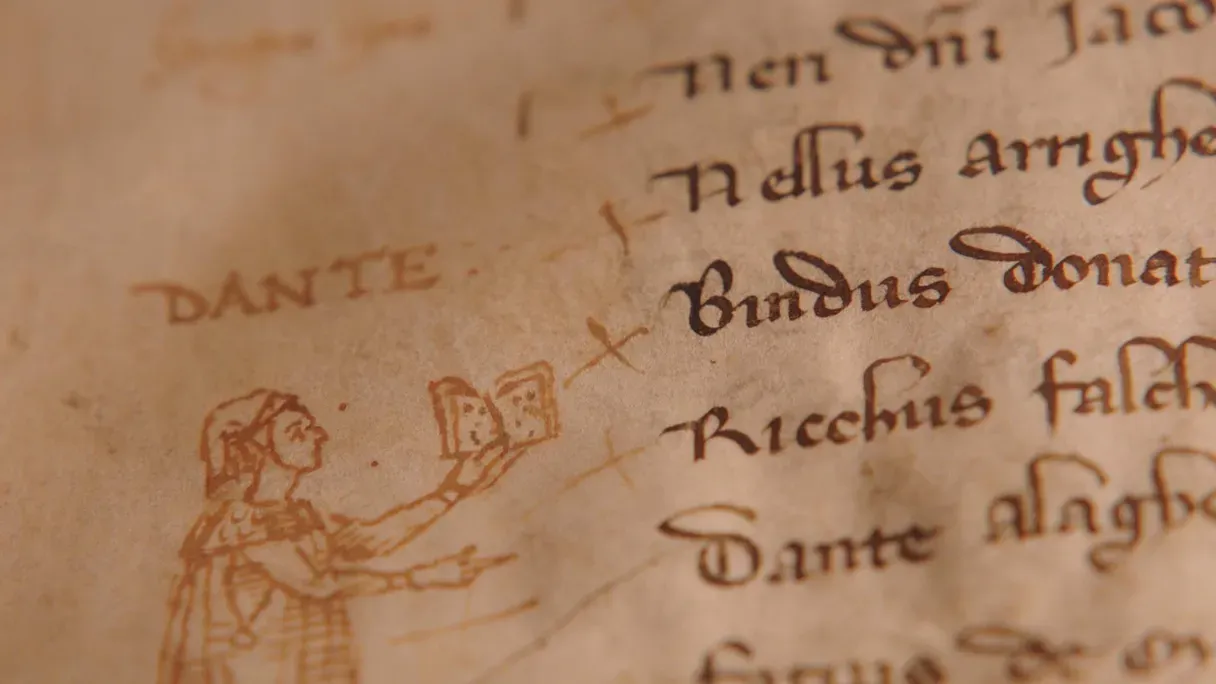 Nen dñi Jaco
Nellus arrighe
DANTE.
Bindus donat
Ricchus falch
Dante alaghe